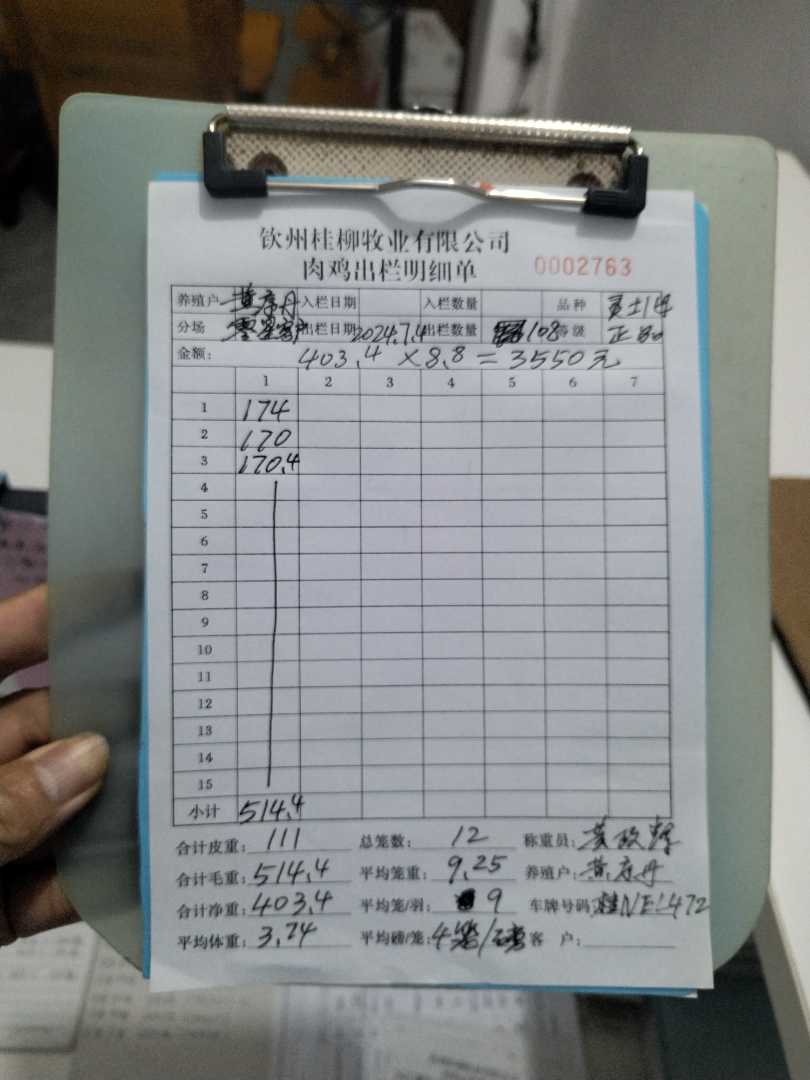 钦州桂柳牧业有限公司
肉鸡出栏明细单 0002763
养殖户 入栏日期 入栏数量 品种
分场 零星客户 出栏日期 2024.7.4 出栏数量 108 等级 正品
金额: 403.4 × 8.8 = 3550元
1 2 3 4 5 6 7
1 174
2 170
3 170.4
4
5
6
7
8
9
10
11
12
13
14
15
小计 514.4
合计皮重: 111 总笼数: 12 称重员: 黄
合计毛重: 514.4 平均笼重: 9.25 养殖户: 黄
合计净重: 403.4 平均笼/羽: 9 车牌号码: 桂NE1472
平均体重: 3.74 平均磅/笼: 4笼/磅 客 户: